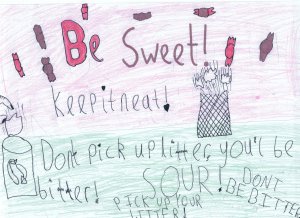 Be Sweet!
Keep it neat!
Dont pick up litter, you'll be
bitter!
SOUR!
DONT
BE BITTER
PICK UP YOUR
LITTER!